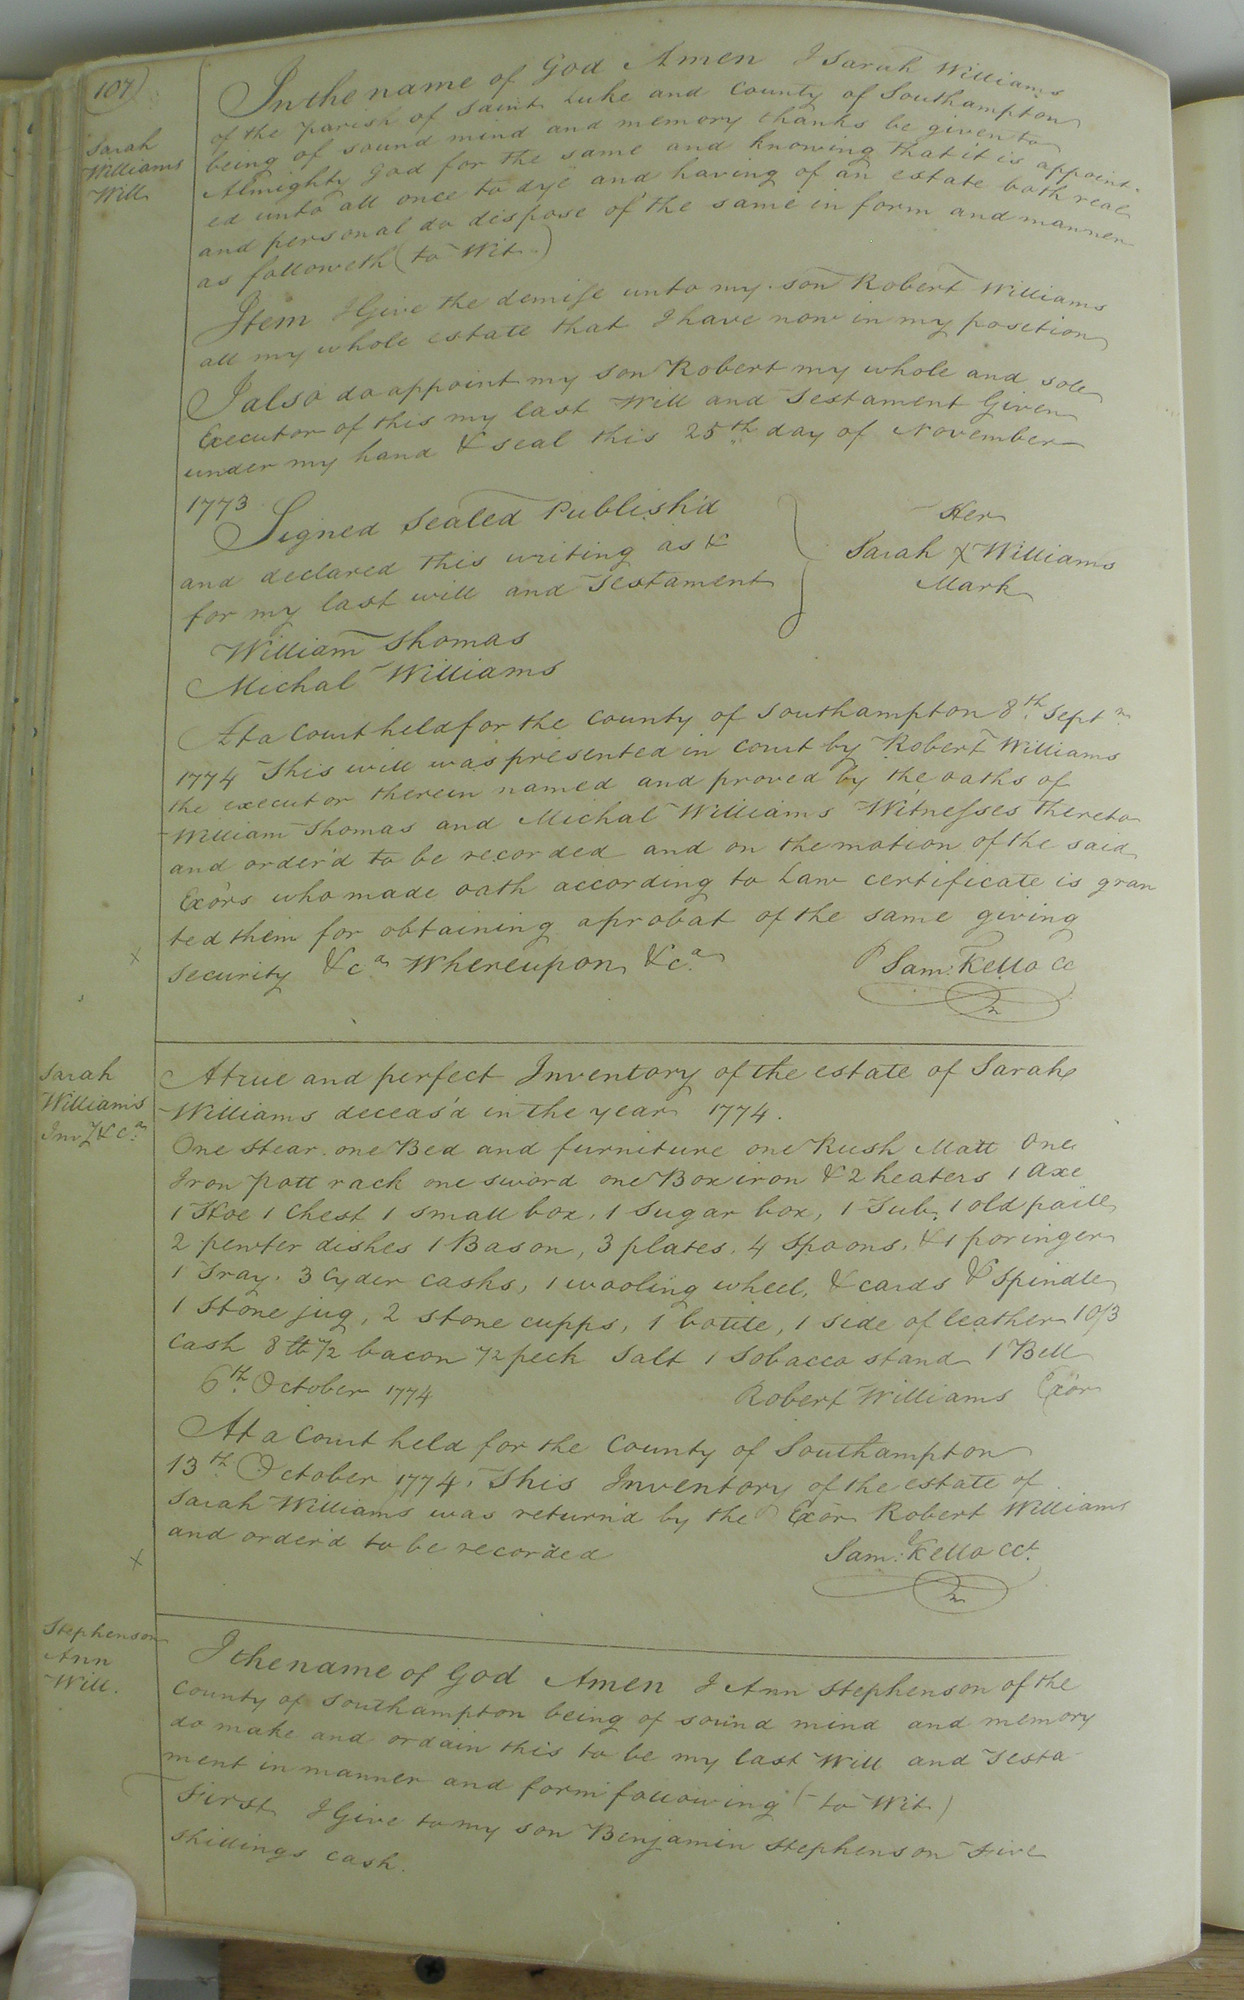 107)
Sarah
Williams
Will
In the name of God Amen I Sarah Williams
of the parish of Saint Luke and County of Southampton
being of sound mind and memory thanks be given to
Almighty God for the same and knowing that it is appoint-
ed unto all once to dye and having of an estate both real
and personal do dispose of the same in form and manner
as followeth (to Wit)
Item I Give the demise unto my son Robert Williams
all my whole estate that I have now in my position
I also do appoint my son Robert my whole and sole
Executor of this my last Will and Testament Given
under my hand & seal this 25th day of November
1773
Signed Sealed Publish'd
and declared this writing as &
for my last will and Testament
Her
Sarah X Williams
Mark
William Thomas
Michal Williams
At a Court held for the County of Southampton 8th Sept
1774 This will was presented in court by Robert Williams
the executor therein named and proved by the oaths of
William Thomas and Michal Williams Witnesses thereto
and order'd to be recorded and on the motion of the said
Exors who made oath according to Law certificate is gran
ted them for obtaining a probat of the same giving
security &ca Whereupon &ca
Sam: Kello CC
Sarah
Williams's
Invy &ca
A true and perfect Inventory of the estate of Sarah
Williams deceas'd in the year 1774.
One stear. one Bed and furniture one Rush Matt One
Iron pott rack one sword one Box iron & 2 heaters 1 axe
1 Hoe 1 Chest 1 small box, 1 Sugar box, 1 Tub, 1 old paile
2 pewter dishes 1 Bason, 3 plates, 4 Spoons, & 1 poringer
1 Tray, 3 Cyder casks, 1 wooling wheel, & cards & Spindle
1 Stone jug, 2 stone cupps, 1 bottle, 1 side of leather 10/3
Cash 8 lb 1/2 bacon 1/2 peck Salt 1 Tobacco stand 1 Bell
6th October 1774
Robert Williams Exor
At a Court held for the County of Southampton
13th October 1774. This Inventory of the estate of
Sarah Williams was return'd by the Exor Robert Williams
and order'd to be recorded
Sam: Kello CCt.
Stephenson
Ann
Will.
I the name of God Amen I Ann Stephenson of the
County of Southampton being of sound mind and memory
do make and ordain this to be my last Will and Testa-
ment in manner and form following (to Wit)
First I Give to my son Benjamin Stephenson Five
Shillings cash.